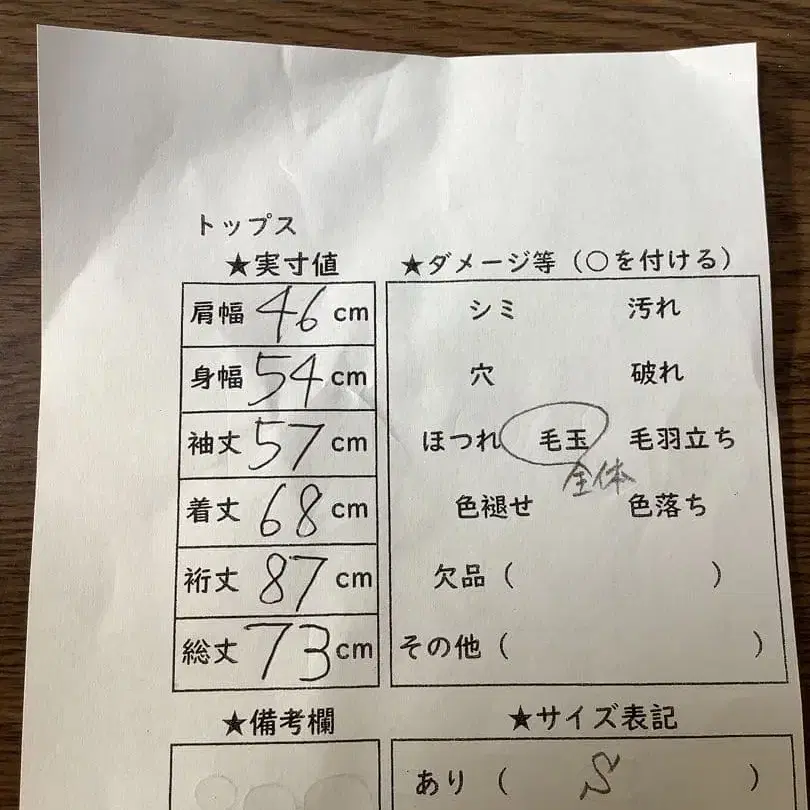 トップス
★実寸値
肩幅 46 cm
身幅 54 cm
袖丈 57 cm
着丈 68 cm
裄丈 87 cm
総丈 73 cm
★ダメージ等（○を付ける）
シミ 汚れ
穴 破れ
ほつれ 毛玉 毛羽立ち
全体
色褪せ 色落ち
欠品（ ）
その他（ ）
★備考欄
★サイズ表記
あり（ S ）